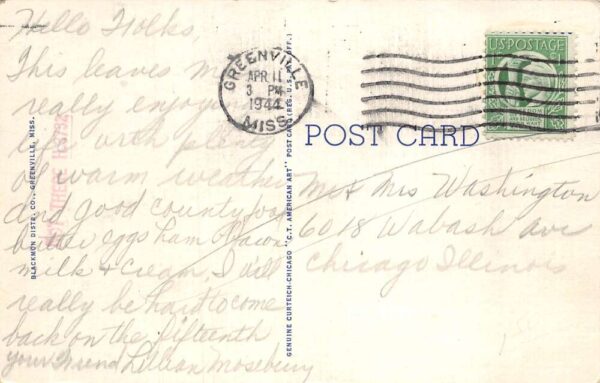 Hello Folks,
This leaves me
really enjoying
life with plenty
of warm weather
and good country food
butter eggs ham Bacon
milk & cream. I will
really be hard to come
back on the fifteenth
your Friend Lillian Mosebury
BLACKMON DISTR. CO., GREENVILLE, MISS.
GREENVILLE
APR 11
3 PM
1944
MISS.
U.S. POSTAGE
POST CARD
GENUINE CURTEICH-CHICAGO "C.T. AMERICAN ART" POST CARD (REG. U.S. PAT. OFF.)
Mr & Mrs Washington
6018 Wabash Ave
Chicago Illinois